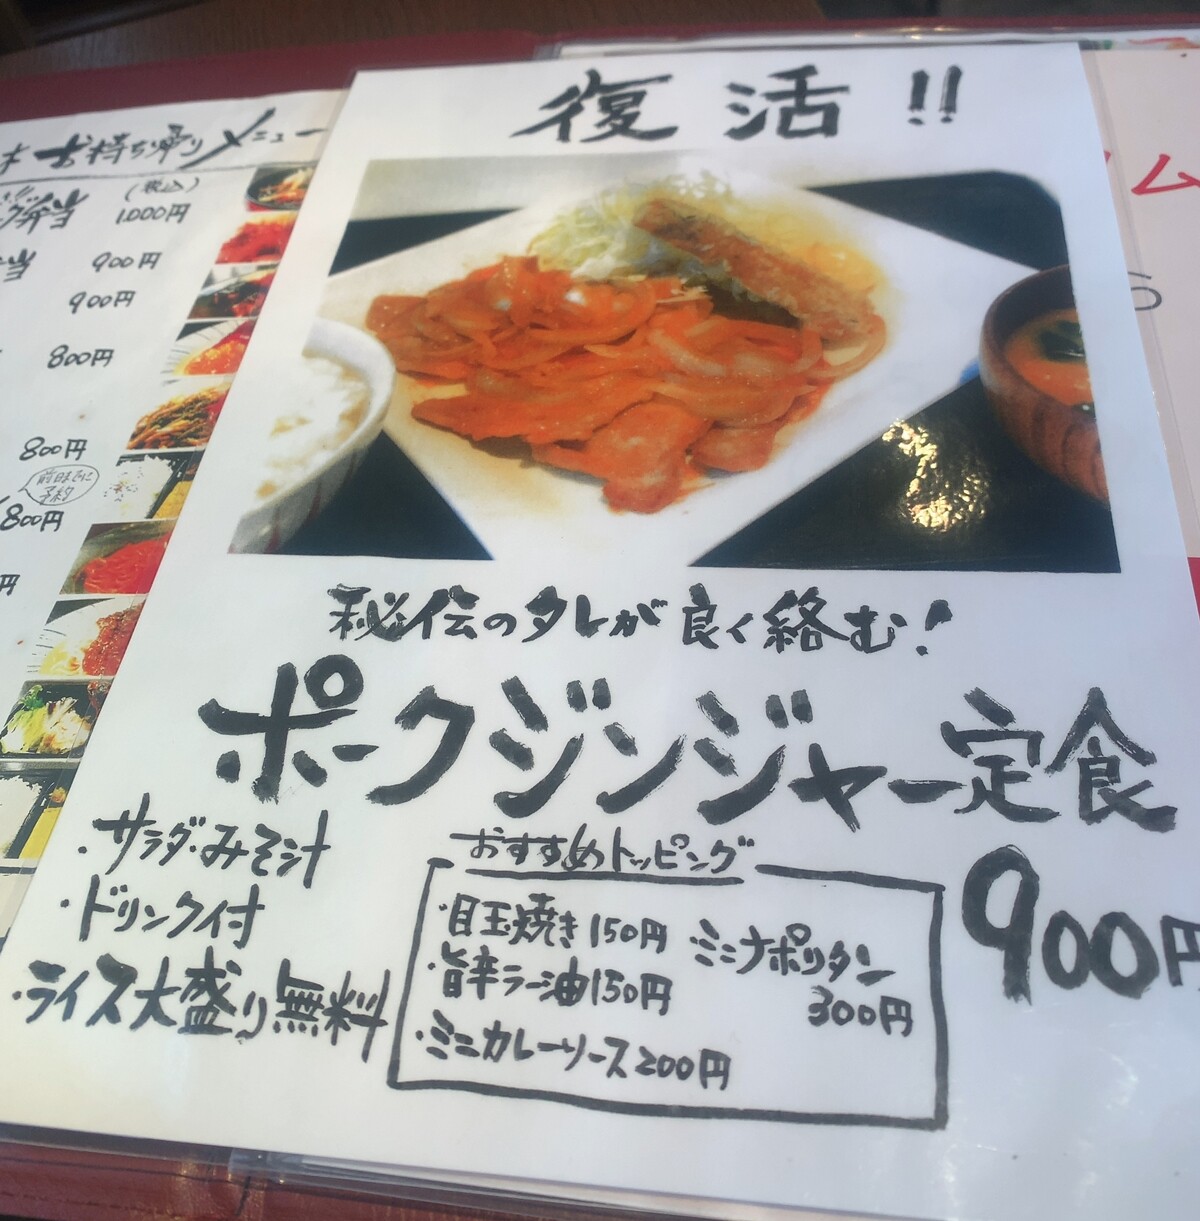 復活!!
秘伝のタレが良く絡む!
ポークジンジャー定食
900円
・サラダ・みそ汁
・ドリンク付
・ライス大盛り無料
おすすめトッピング
・目玉焼き150円
・旨辛ラー油150円
・ミニカレーソース200円
ミニナポリタン
300円
お持ち帰りメニュー
(税込)
弁当 1,000円
当 900円
900円
800円
800円
前日までに
予約
800円
円
ム